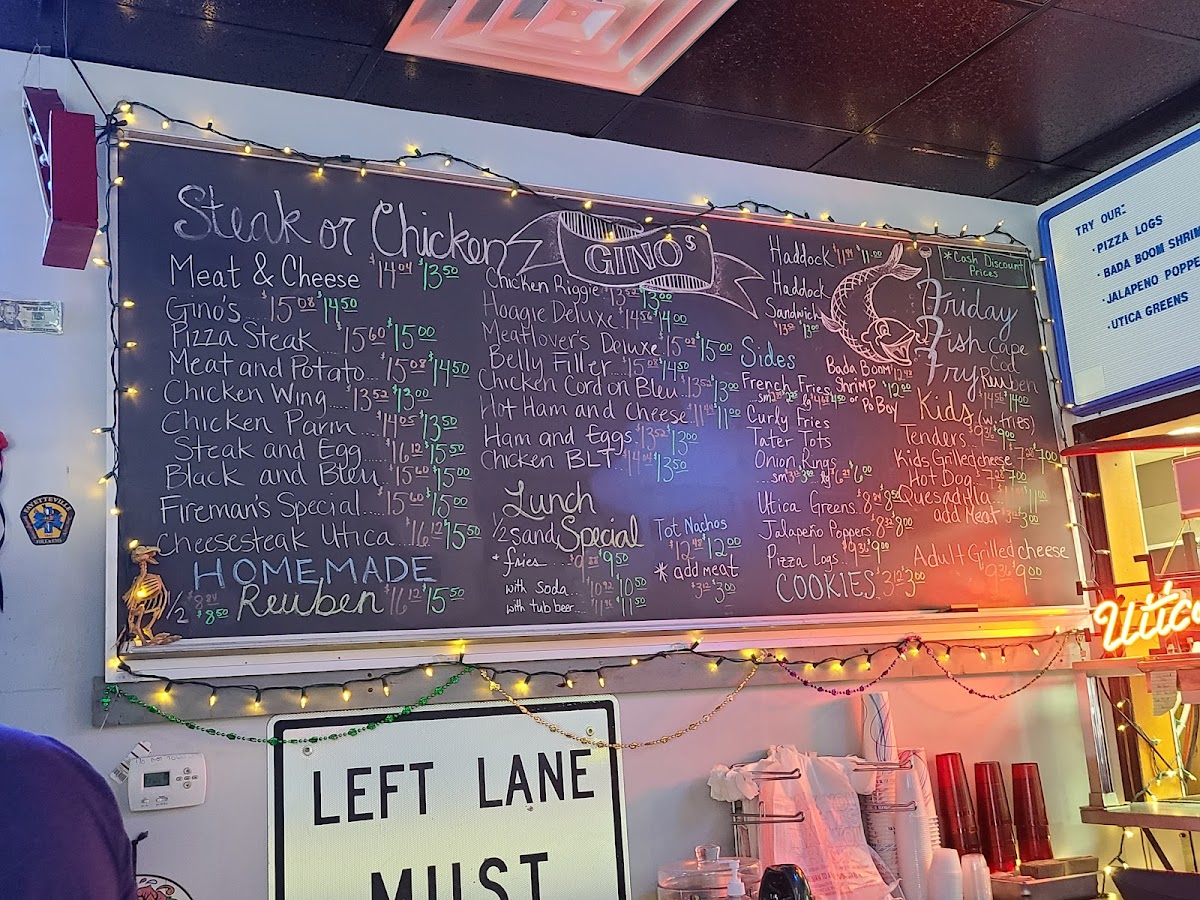 Steak or Chicken
GINO'S
Meat & Cheese $14.04 $13.50
Gino's $15.08 $14.50
Pizza Steak $15.60 $15.00
Meat and Potato $15.08 $14.50
Chicken Wing $13.52 $13.00
Chicken Parm $14.05 $13.50
Steak and Egg $16.12 $15.50
Black and Bleu $15.60 $15.00
Fireman's Special $15.60 $15.00
Cheesesteak Utica $16.12 $15.50
HOMEMADE
1/2 $8.84 $8.50 Reuben $16.12 $15.50
Chicken Riggie $13.52 $13.00
Hoagie Deluxe $14.56 $14.00
Meatlover's Deluxe $15.08 $15.00
Belly Filler $15.08 $14.50
Chicken Cordon Bleu $13.52 $13.00
Hot Ham and Cheese $11.44 $11.00
Ham and Eggs $13.52 $13.00
Chicken BLT $14.04 $13.50
Lunch
1/2 sand, Special
* fries $9.50
with soda $10.92 $10.50
with tub beer $11.96 $11.50
Tot Nachos
$12.48 $12.00
* add meat
$3.12 $3.00
Haddock $11.44 $11.00
Haddock
Sandwich
$13.00
Sides
French Fries
Curly Fries
Tater Tots
Onion Rings
$6.00
Utica Greens $8.84 $8.50
Jalapeño Poppers $8.32 $8.00
Pizza Logs $9.36 $9.00
COOKIES $3.12 $3.00
*Cash Discount
Prices
Friday
Fish
Fry
Cape
Cod
Reuben
$14.00
Bada Boom $12.48
Shrimp $12.00
or Po Boy
Kids (w. fries)
Tenders $9.36 $9.00
Kids Grilled cheese $7.00
Hot Dog $7.00
Quesadilla $11.00
add Meat $3.00
Adult Grilled cheese
$9.36 $9.00
TRY OUR:
• PIZZA LOGS
• BADA BOOM SHRIM
• JALAPENO POPPE
• UTICA GREENS
Utica
FAYETTEVILLE
LEFT LANE
MUST